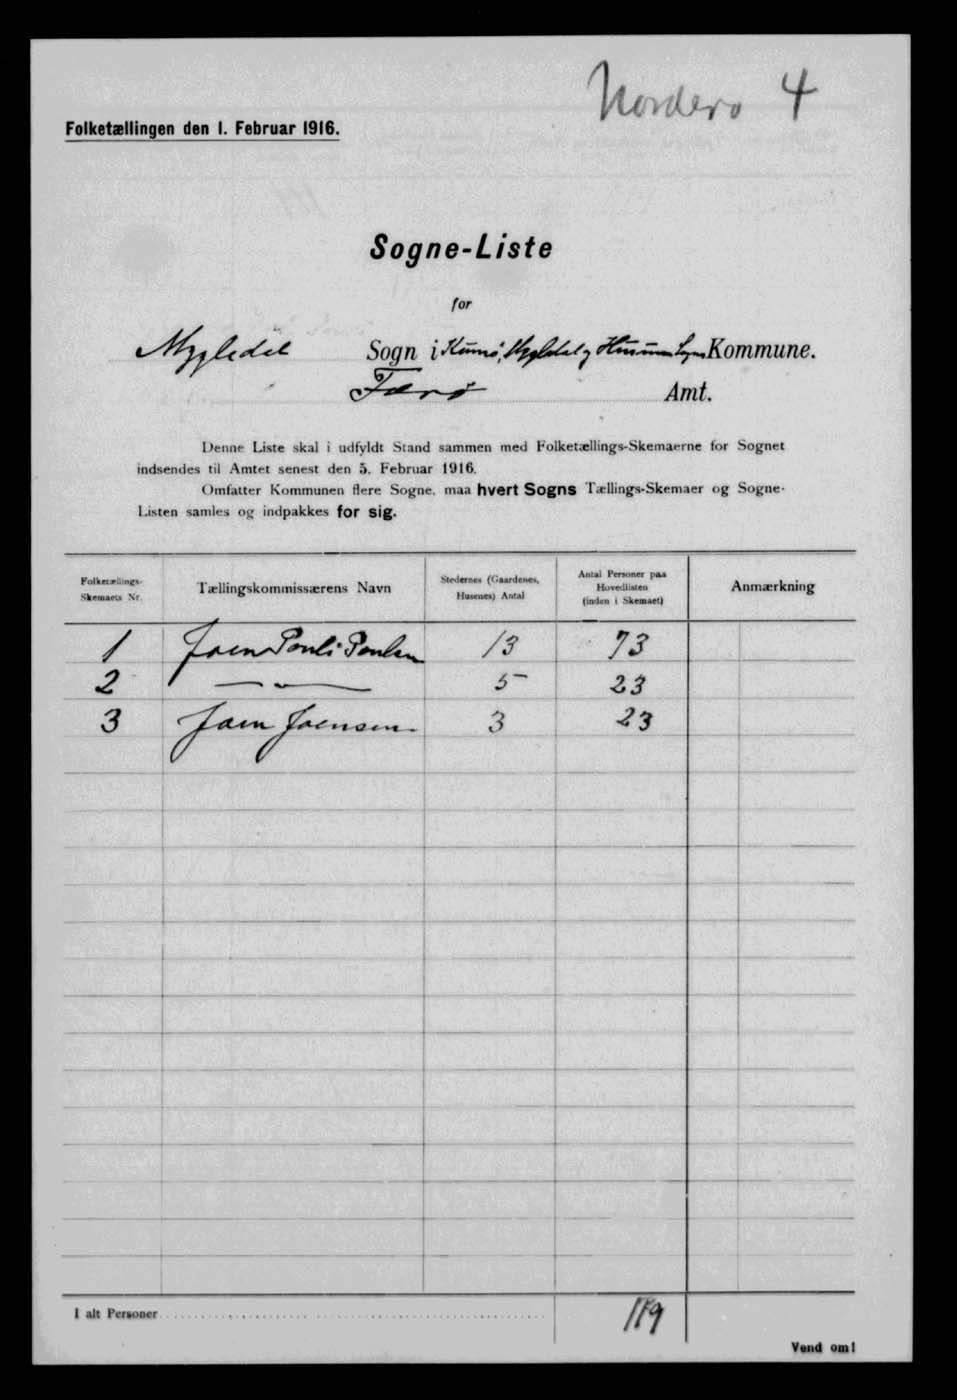 Norderø 4
Folketællingen den 1. Februar 1916.
Sogne-Liste
for
Mygledal Sogn i Kunø, Mygledal og Husum Sogns Kommune.
Færø Amt.
Denne Liste skal i udfyldt Stand sammen med Folketællings-Skemaerne for Sognet
indsendes til Amtet senest den 5. Februar 1916.
Omfatter Kommunen flere Sogne, maa hvert Sogns Tællings-Skemaer og Sogne-
Listen samles og indpakkes for sig.
Folketællings-Skemaets Nr. Tællingskommissærens Navn Stedernes (Gaardenes, Husenes) Antal Antal Personer paa Hovedlisten (inden i Skemaet) Anmærkning
1 Joen Pouli Poulsen 13 73
2 — " — 5 23
3 Joen Joensen 3 23
I alt Personer 119
Vend om!